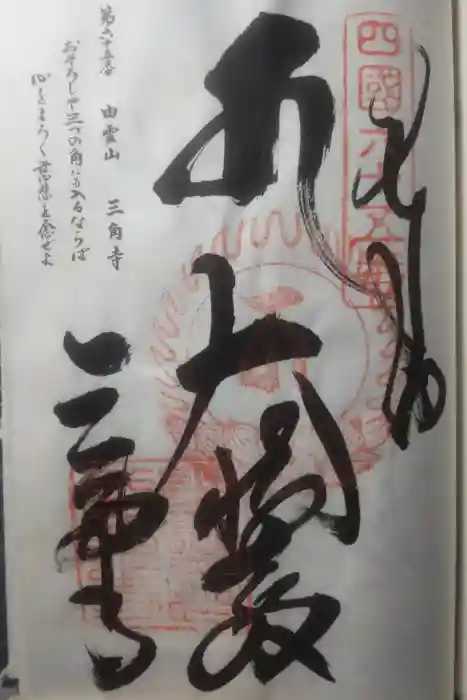 四國六十五番
奉納
大悲殿
三角寺
第六十五番 由霊山 三角寺
おそろしや三つの角にも入るならば
心をまろく慈悲を念ぜよ